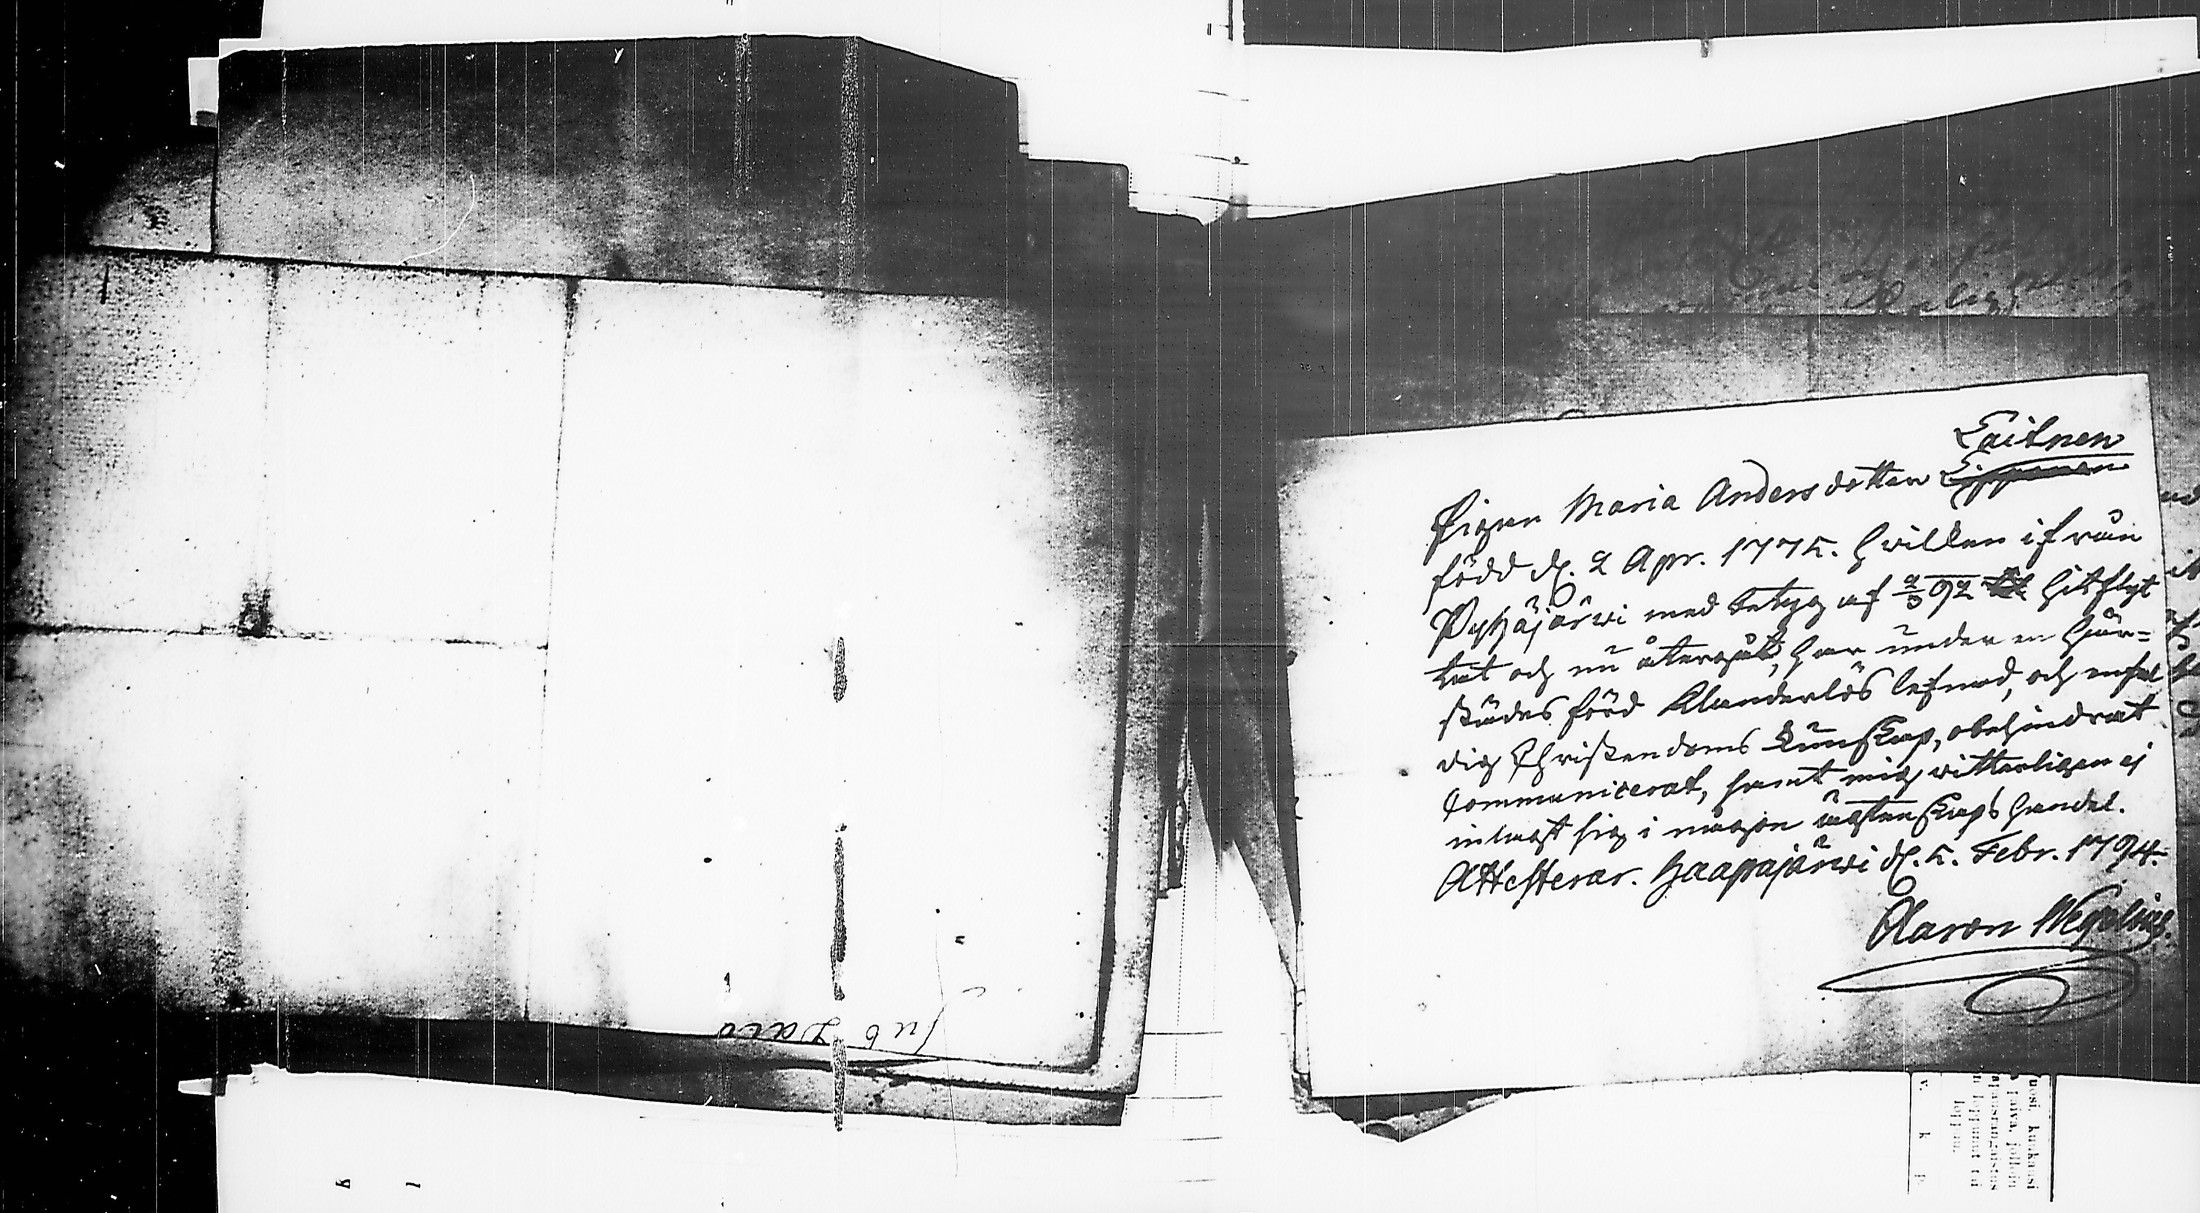 Laitnen
Pigan Maria Andersdotter Lipponen
född d. 2 Apr. 1775. hvilken ifrån
Pyhäjärvi med betyg af 2/3 92 hitflyt
tat och nu återgåt, har under en här-
städes förd klanderlös lefnad, och enfal
dig Christendoms kunskap, obehindrat
communicerat, samt mig vitterligen ej
inlagt sig i någon ägtenskaps handel.
Attesterar. Haapajärvi d. 5. Febr. 1794.
Aaron Wegelius.
Sub